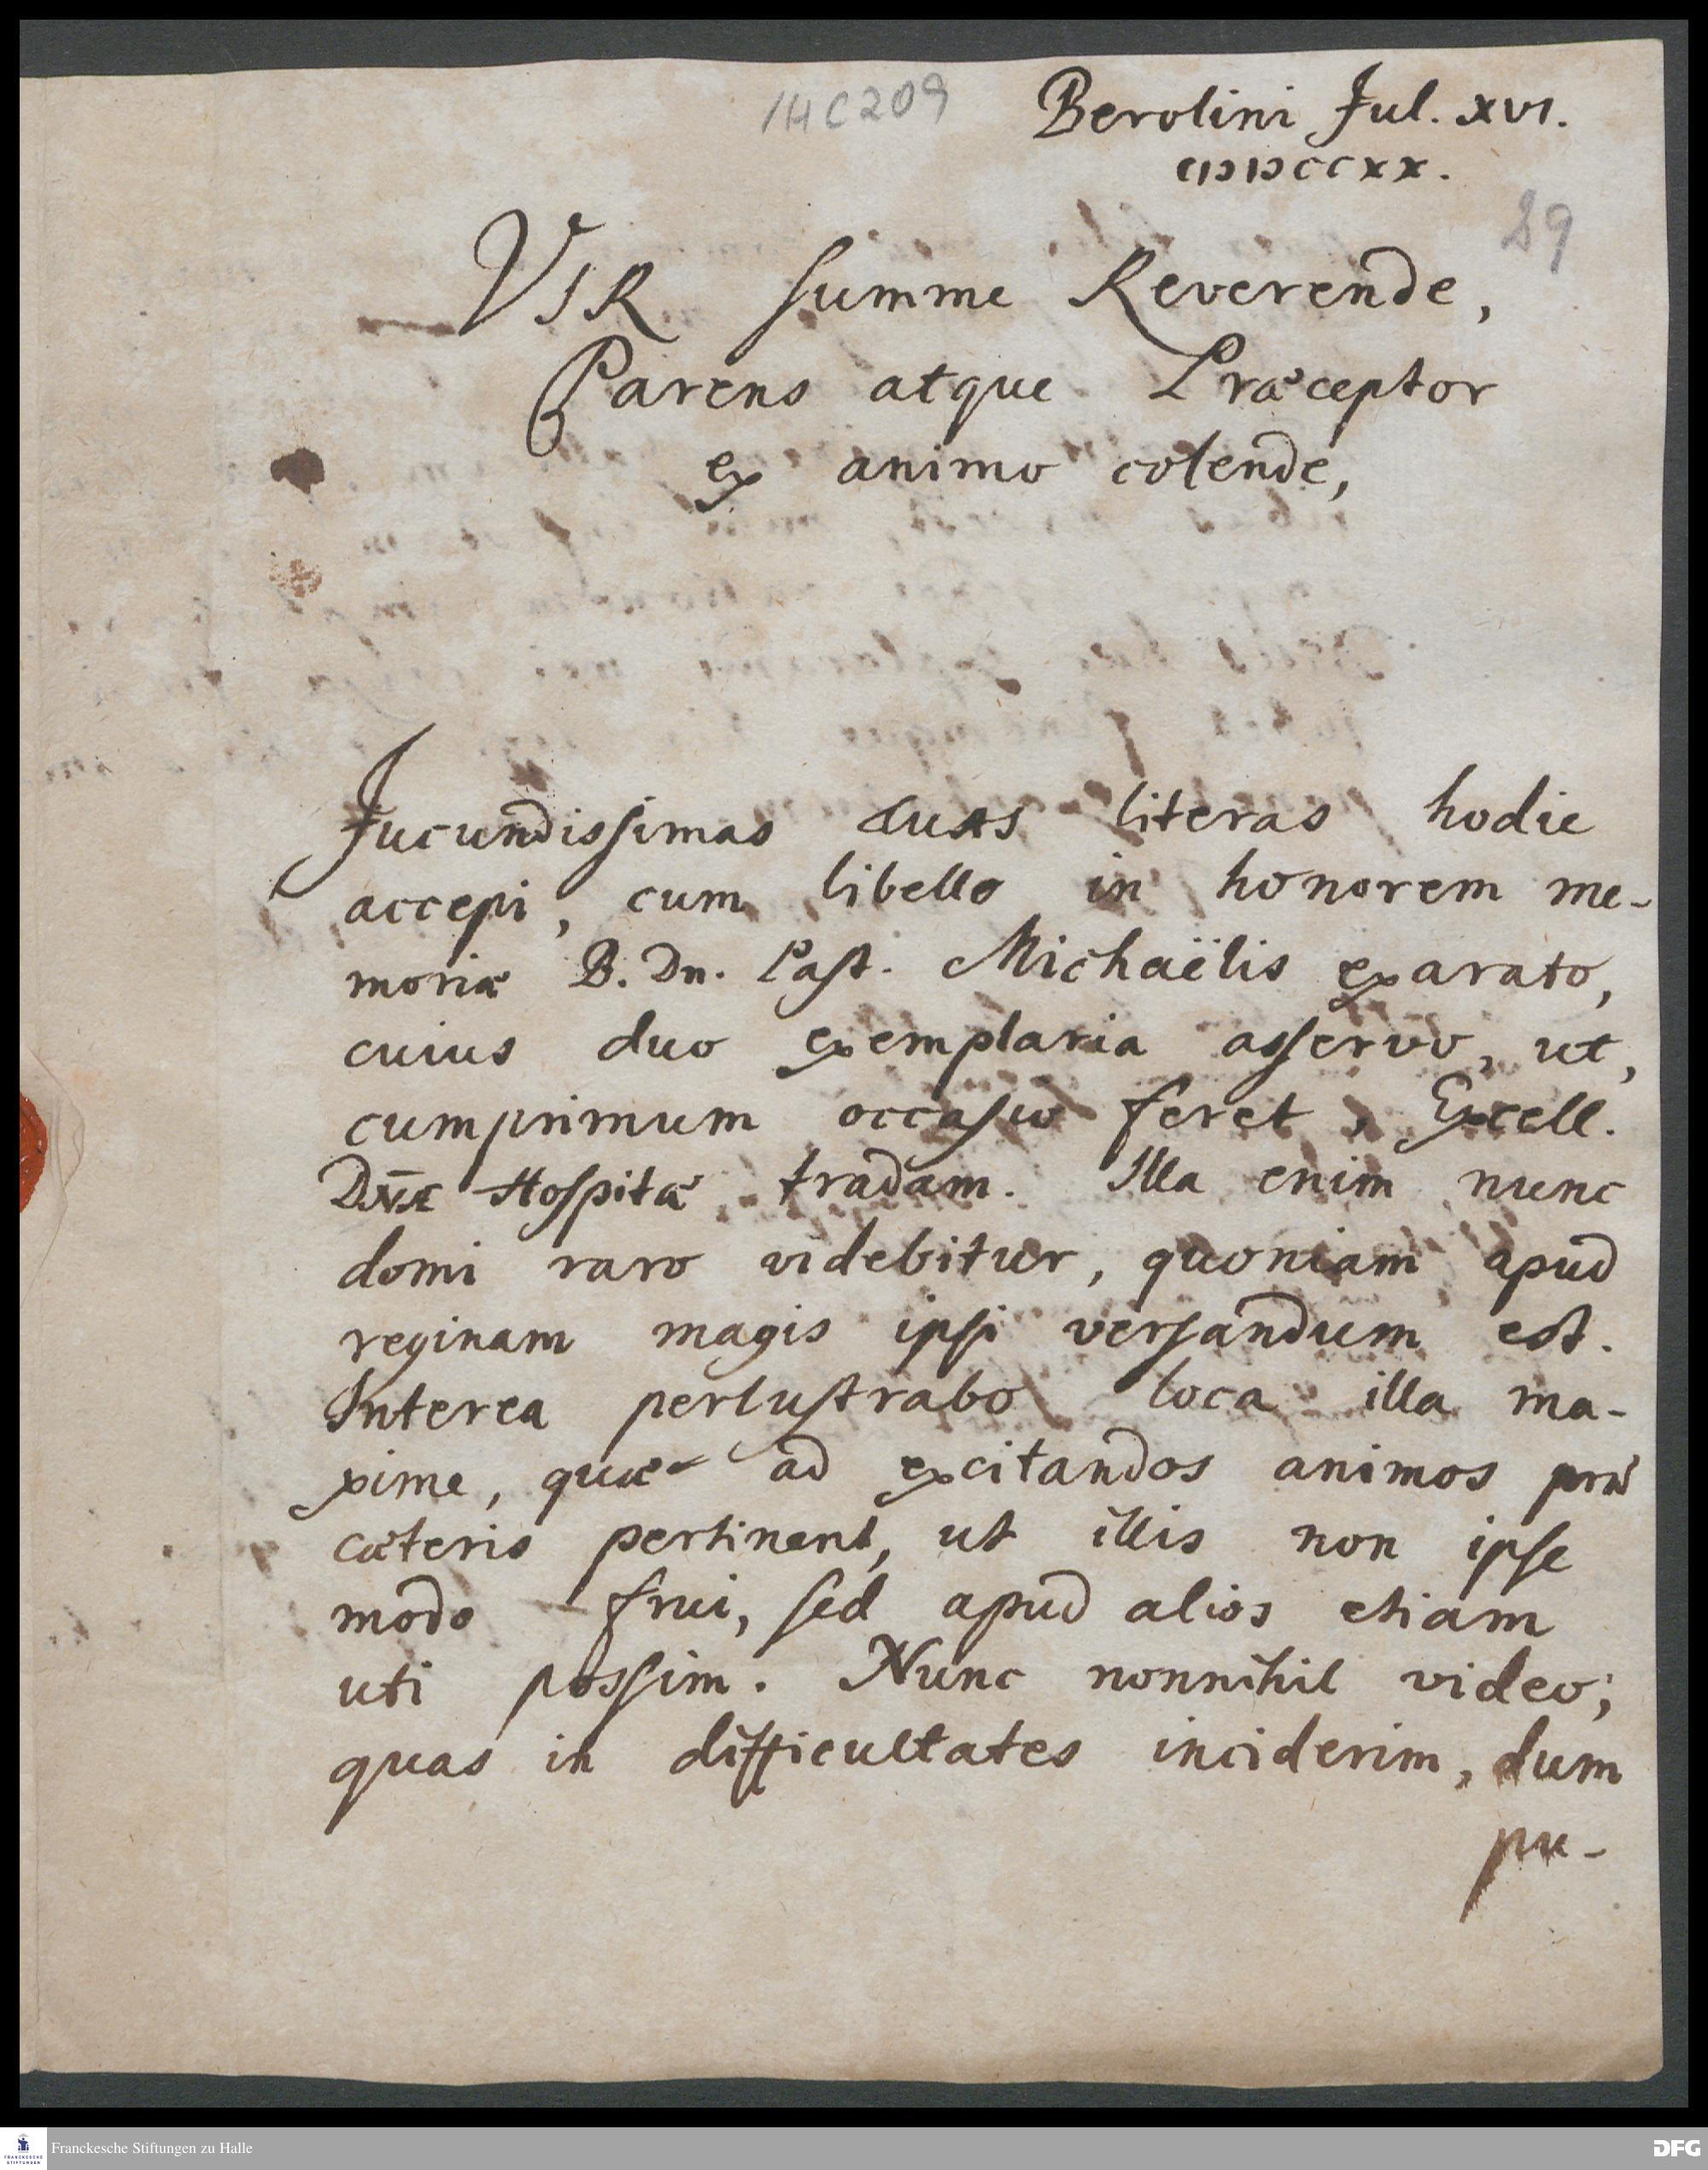 1H C 209
Berolini Jul. XVI.
CIↃIↃCCXX.
89
VIR summe Reverende,
Parens atque Præceptor
ex animo colende,
Jucundissimas tuas literas hodie
accepi, cum libello in honorem me-
moriæ B. Dn. Past. Michaëlis exarato,
cuius duo exemplaria asservo, ut,
cumprimum occasio feret, Excell.
Dn̄æ Hospitæ tradam. Illa enim nunc
domi raro videbitur, quoniam apud
reginam magis ipsi versandum est.
Interea perlustrabo loca illa ma-
xime, quæ ad excitandos animos præ
cæteris pertinent, ut illis non ipse
modo frui, sed apud alios etiam
uti possim. Nunc nonnihil video,
quas in difficultates inciderim, dum
pu-
FRANCKESCHE
STIFTUNGEN
Franckesche Stiftungen zu Halle
DFG